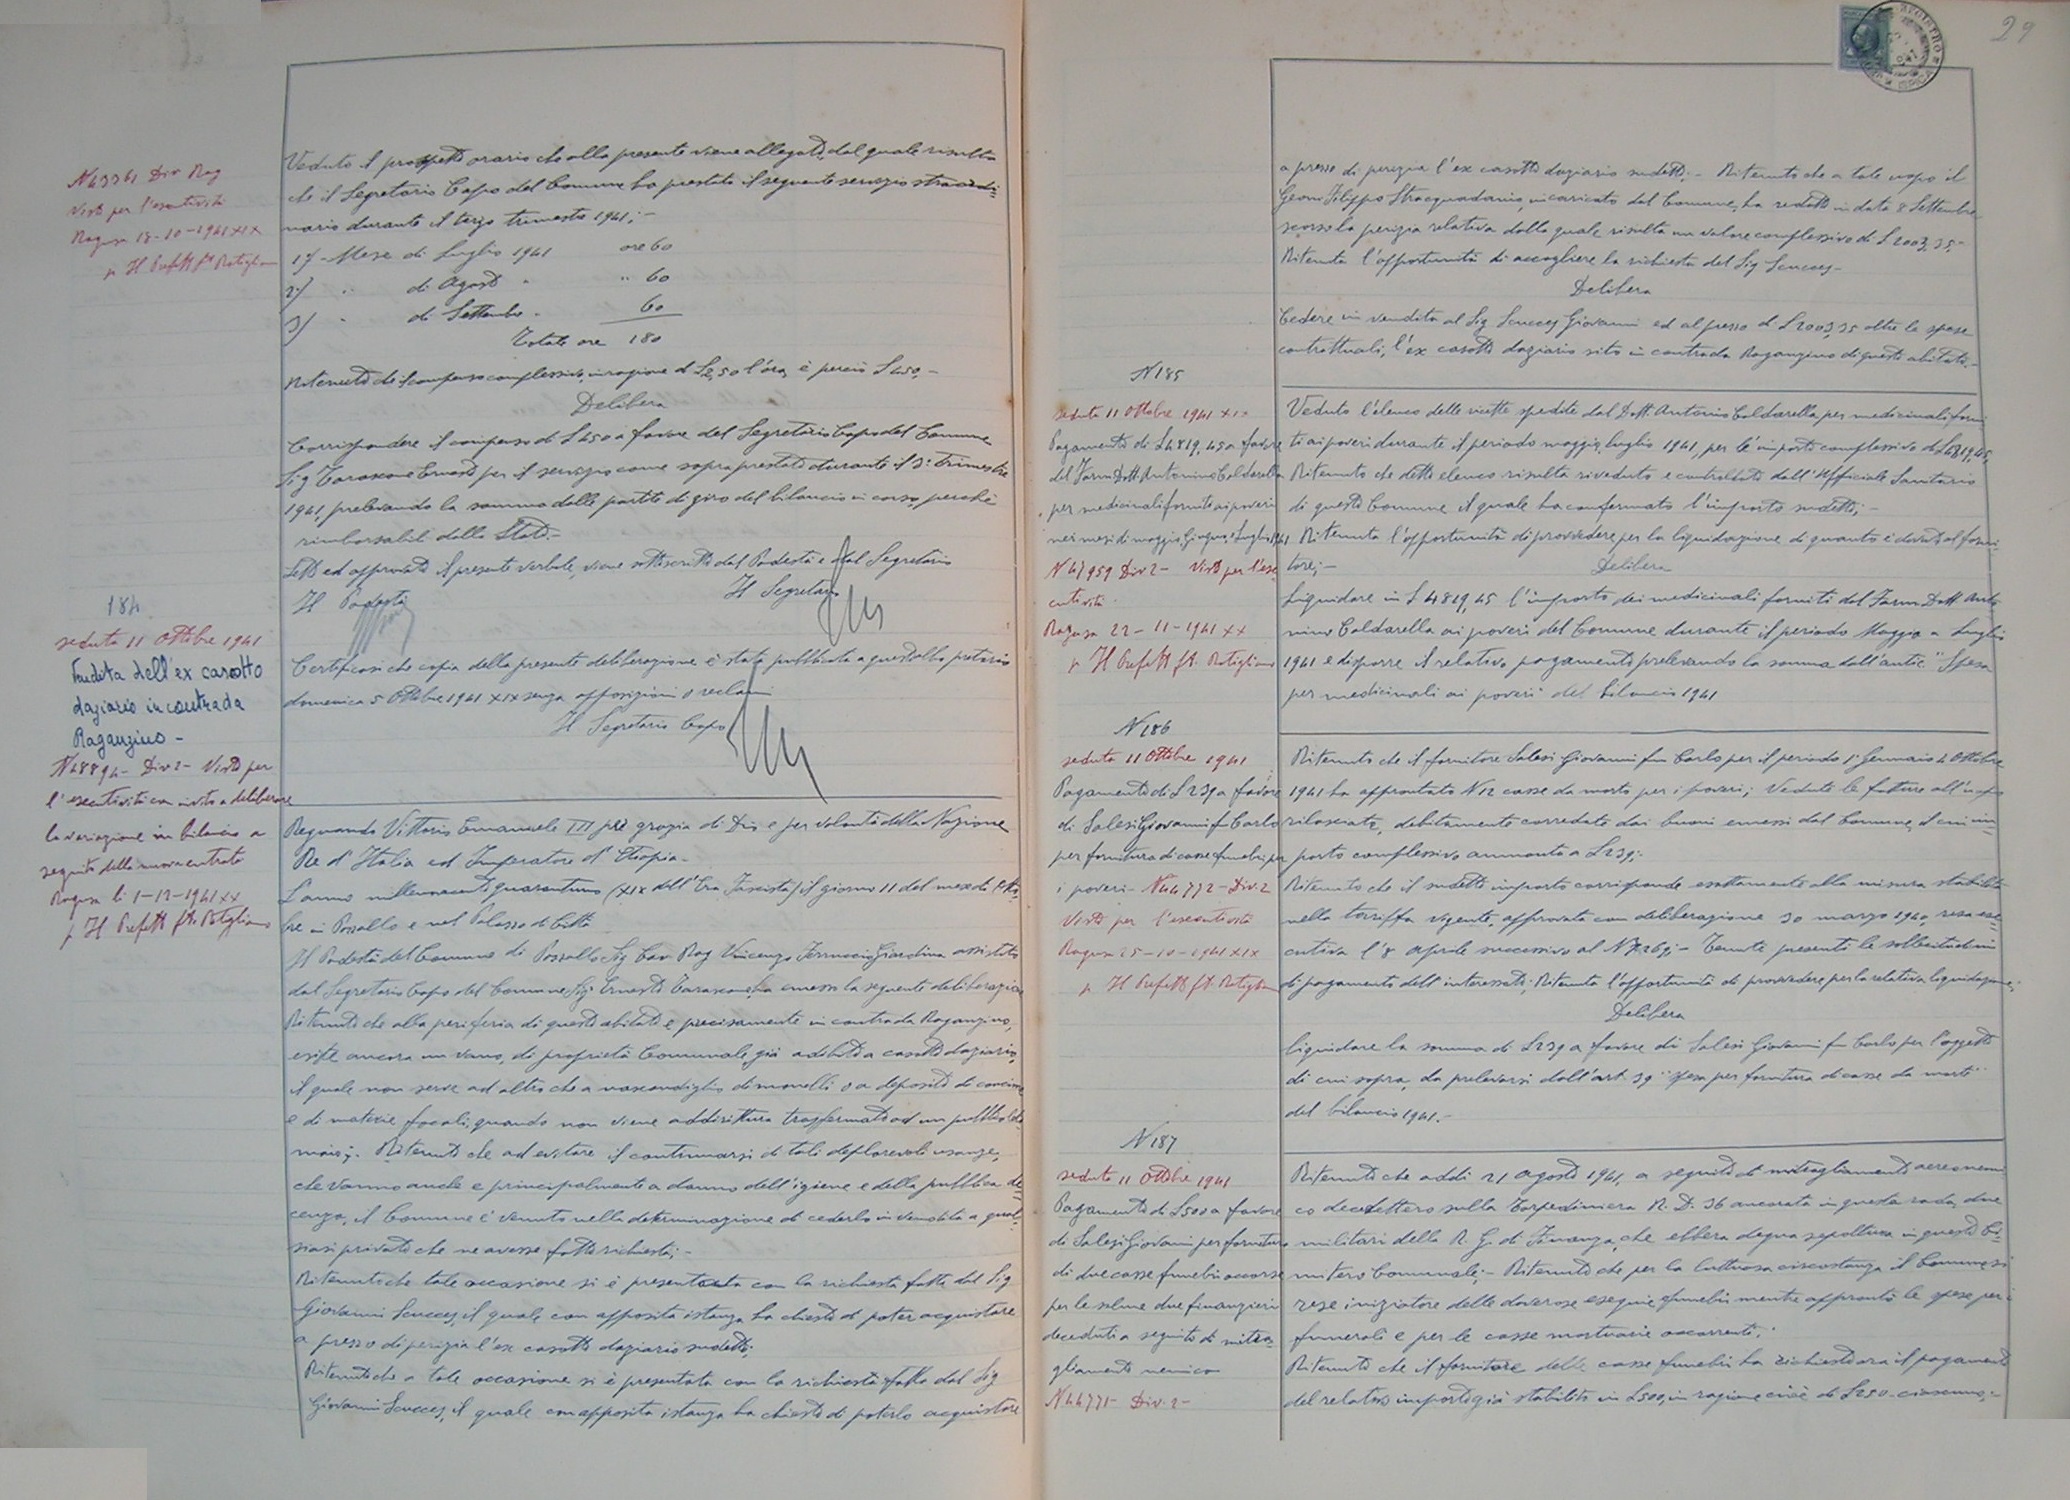 N 43361 Div Rag
Visto per l'esecutività
Ragusa 18-10-1941 XIX
p Il Prefetto ft Ratiglia
Veduto il prospetto orario che alla presente viene allegato, dal quale risulta
che il Segretario Capo del Comune ha prestato il seguente servizio straordi=
nario durante il terzo trimestre 1941;-
1) - Mese di Luglio 1941 ore 60
2) " di Agosto " " 60
3) " di Settembre " 60
Totale ore 180
Ritenuto che il compenso complessivo, in ragione di L 2,50 l'ora, è perciò L 450,-
Delibera
Corrispondere il compenso di L 450 a favore del Segretario Capo del Comune
Sig Tarascone Ernesto per il servizio come sopra prestato durante il 3° Trimestre
1941, prelevando la somma dalle partite di giro del bilancio in corso, perchè
rimborsabile dallo Stato.-
Letto ed approvato il presente verbale, viene sottoscritto dal Podestà e dal Segretario
Il Podestà Il Segretario
Certificasi che copia della presente deliberazione è stata pubblicata a quest'albo pretorio
domenica 5 Ottobre 1941 XIX senza opposizioni o reclami
Il Segretario Capo
184
seduta 11 Ottobre 1941
Vendita dell'ex casotto
daziario in contrada
Raganzino -
N 48894 - Div 2 - Visto per
l'esecutività con invito a deliberare
la variazione in bilancio a
seguito della nuova entrata
Ragusa lì 1-12-1941 XX
p Il Prefetto ft. Ratiglia
Regnando Vittorio Emanuele III per grazia di Dio e per volontà della Nazione
Re d'Italia ed Imperatore d'Etiopia-
L'anno millenovecentoquarantuno (XIX dell'Era Fascista) il giorno 11 del mese di Otto=
bre in Pozzallo e nel Palazzo di Città
Il Podestà del Comune di Pozzallo Sig Cav Rag Vincenzo Ferruccio Giardina assistito
dal Segretario Capo del Comune Sig Ernesto Tarascone, ha emesso la seguente deliberazione
Ritenuto che alla periferia di questo abitato e precisamente in contrada Raganzino,
esiste ancora un vano, di proprietà Comunale, già adibito a casotto daziario,
il quale non serve ad altro che a nascondiglio di monelli o a deposito di concime
e di materie fecali, quando non viene addirittura trasformato ad un pubblico
Ritenuto che ad evitare il continuarsi di tali deplorevoli usanze,
che vanno anche e principalmente a danno dell'igiene e della pubblica de=
cenza, il Comune è venuto nella determinazione di cederlo in vendita a qual=
siasi privato che ne avesse fatto richiesta;-
Ritenuto che tale occasione si è presentata con la richiesta fatta dal Sig
Giovanni Scucces, il quale con apposita istanza ha chiesto di poter acquistare
a prezzo di perizia l'ex casotto daziario sudetto;
Ritenuto che a tale occasione si è presentata con la richiesta fatta dal Sig
Giovanni Scucces, il quale con apposita istanza ha chiesto di poterlo acquistare
29
a prezzo di perizia l'ex casotto daziario sudetto;- Ritenuto che a tale uopo il
Geom Filippo Stracquadanio, incaricato dal Comune, ha redatto in data 8 Settembre
scorso la perizia relativa dalla quale risulta un valore complessivo di L 2003,35-
Ritenuta l'opportunità di accogliere la richiesta del Sig Scucces-
Delibera
Cedere in vendita al Sig Scucces Giovanni ed al prezzo di L 2003,35 oltre le spese
contrattuali, l'ex casotto daziario sito in contrada Raganzino di questo abitato.-
N 185
seduta 11 Ottobre 1941 XIX
Pagamento di L 4819,45 a favore
del Farm Dott. Antonino Caldarella
per medicinali forniti ai poveri
nei mesi di maggio, Giugno e Luglio 1941
N 47959 Div 2 - Visto per l'ese=
cutività
Ragusa 22-11-1941 XX
p Il Prefetto ft. Ratiglia
Veduto l'elenco delle ricette spedite dal Dott. Antonino Caldarella per medicinali forni
ti ai poveri durante il periodo maggio, luglio 1941, per l'importo complessivo di L 4819,45;
Ritenuto che detto elenco risulta riveduto e controllato dall'Ufficiale Sanitario
di questo Comune il quale ha confermato l'importo sudetto;-
Ritenuta l'opportunità di provvedere per la liquidazione di quanto è dovuto al forni=
tore;- Delibera
Liquidare in L 4819,45 l'importo dei medicinali forniti dal Farm Dott. Anto
nino Caldarella ai poveri del Comune durante il periodo Maggio a Luglio
1941 e disporre il relativo pagamento prelevando la somma dall'artic. "Spesa
per medicinali ai poveri" del bilancio 1941
N 186
seduta 11 Ottobre 1941
Pagamento di L 239 a favore
di Salesi Giovanni fu Carlo
per fornitura di casse funebri per
i poveri - N 44772 - Div. 2
Visto per l'esecutività
Ragusa 25-10-1941 XIX
p Il Prefetto ft. Ratiglia
Ritenuto che il fornitore Salesi Giovanni fu Carlo per il periodo 1° Gennaio 4 Ottobre
1941 ha approntato N 12 casse da morto per i poveri; Vedute le fatture all'uopo
rilasciate, debitamente corredate dai buoni emessi dal Comune, il cui im=
porto complessivo ammonta a L 239;-
Ritenuto che il sudetto importo corrisponde esattamente alla misura stabilita
nella tariffa vigente, approvata con deliberazione 30 marzo 1940, resa ese=
cutiva l'8 aprile successivo al N 7269;- Tenute presenti le sollecitudini
di pagamento dell'interessato; Ritenuta l'opportunità di provvedere per la relativa liquidazione;
Delibera
Liquidare la somma di L 239 a favore di Salesi Giovanni fu Carlo per l'oggetto
di cui sopra, da prelevarsi dall'art. 39 "spesa per fornitura di casse da morto"
del bilancio 1941.-
N 187
seduta 11 Ottobre 1941
Pagamento di L 500 a favore
di Salesi Giovanni per fornitura
di due casse funebri occorse
per le salme due finanzieri
deceduti a seguito di mitra=
gliamento nemico
N 44771 - Div. 2 -
Ritenuto che addì 21 Agosto 1941, a seguito di mitragliamento aereo nemi
co decedettero sulla Torpediniera R. D. 36 ancorata in questa rada, due
militari della R. G. di Finanza, che ebbero degna sepoltura in questo Ci=
mitero Comunale;- Ritenuto che per la luttuosa circostanza il Comune si
rese iniziatore delle doverose esequie funebri mentre approntò le spese per i
funerali e per le casse mortuarie occorrenti;
Ritenuto che il fornitore delle casse funebri ha richiesto ora il pagamento
del relativo importo già stabilito in L 500, in ragione cioè di L 250 ciascuna;-